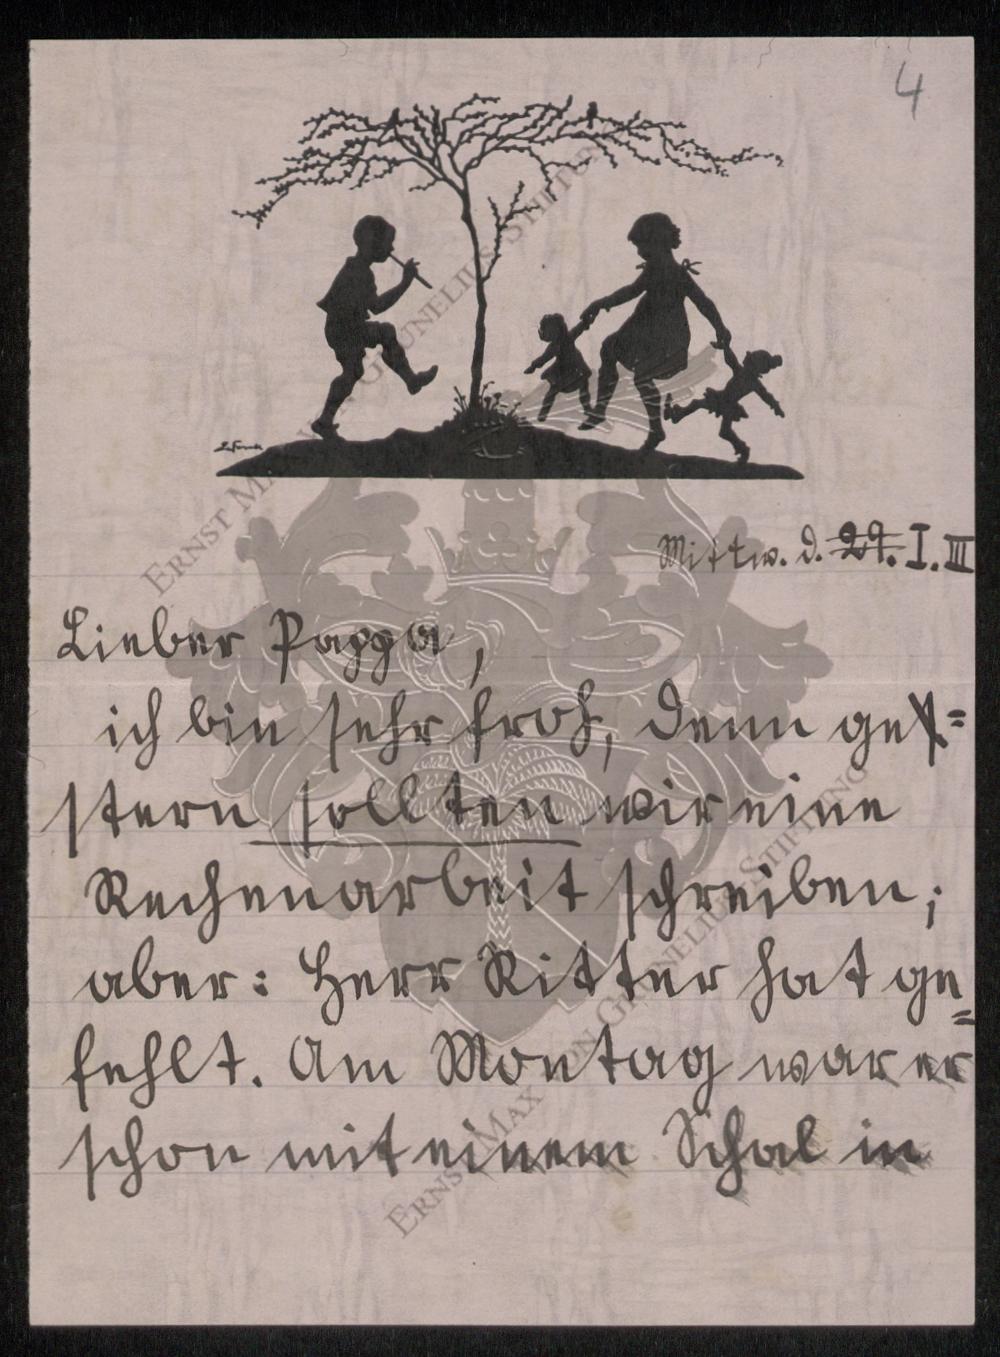 4
Mittw. d. 29. I. III
Lieber Pappa,
ich bin sehr froh, denn ge=
stern sollten wir eine
Rechenarbeit schreiben;
aber: Herr Ritter hat ge=
fehlt. Am Montag war er
schon mit einem Schal in
ERNST MAX VON GRUNELIUS-STIFTUNG
ERNST MAX VON GRUNELIUS-STIFTUNG